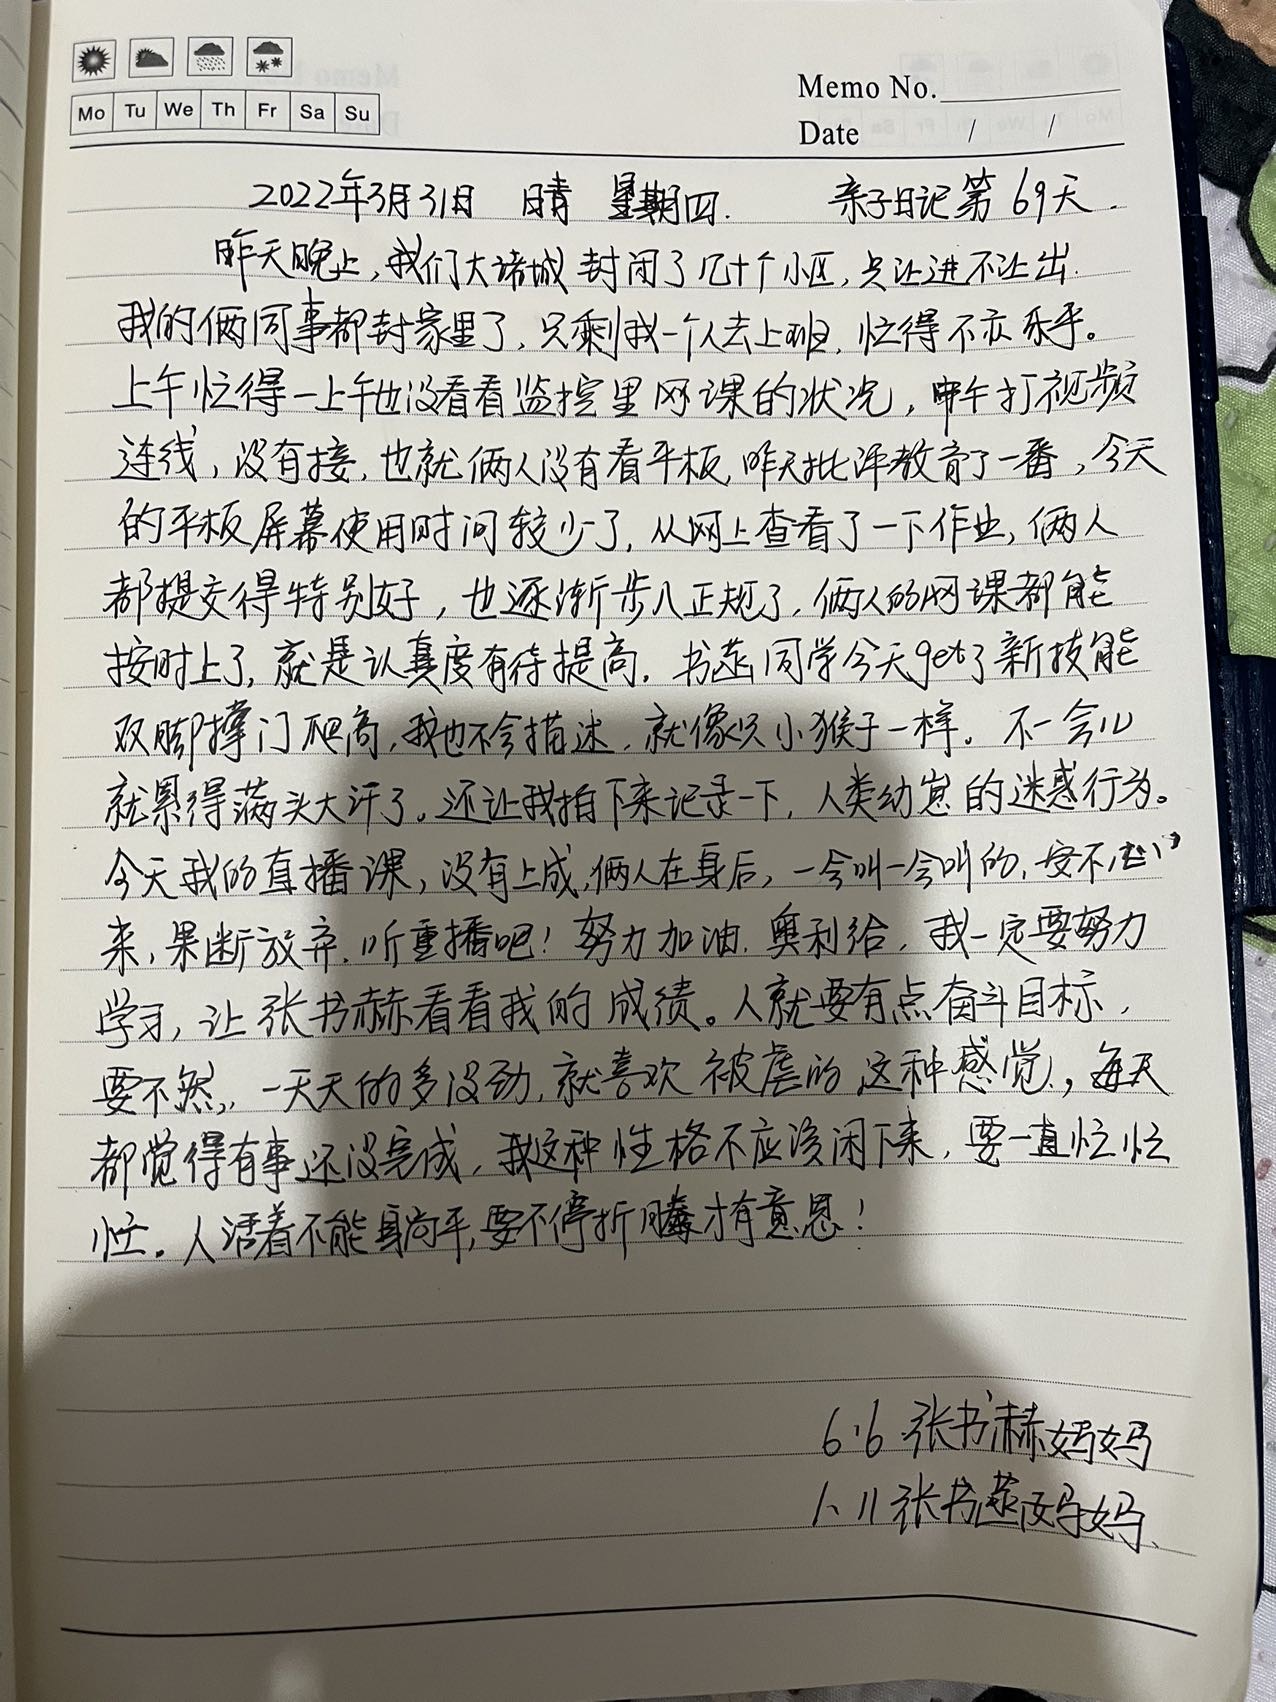 Mo Tu We Th Fr Sa Su
Memo No.
Date / /
2022年3月31日 晴 星期四. 亲子日记第69天.
昨天晚上,我们大诸城封闭了几十个小区,只让进不让出.
我的俩同事都封家里了,只剩我一个人去上班,忙得不亦乐乎。
上午忙得一上午也没看看监控里网课的状况,中午打视频
连线,没有接,也就俩人没有看平板,昨天批评教育了一番,今天
的平板屏幕使用时间较少了,从网上查看了一下作业,俩人
都提交得特别好,也逐渐步入正规了,俩人的网课都能
按时上了,就是认真度有待提高.书菡同学今天get了新技能
双脚撑门爬高,我也不会描述,就像只小猴子一样。不一会儿
就累得满头大汗了。还让我拍下来记录一下,人类幼崽的迷惑行为。
今天我的直播课,没有上成,俩人在身后,一会叫一会叫的,安不下心
来,果断放弃,听重播吧!努力加油.奥利给,我一定要努力
学习,让张书赫看看我的成绩。人就要有点奋斗目标,
要不然,一天天的多没劲,就喜欢被虐的这种感觉,每天
都觉得有事还没完成,我这种性格不应该闲下来,要一直忙忙
忙。人活着不能躺平,要不停折腾才有意思!
6.6 张书赫妈妈
1.11 张书菡妈妈.